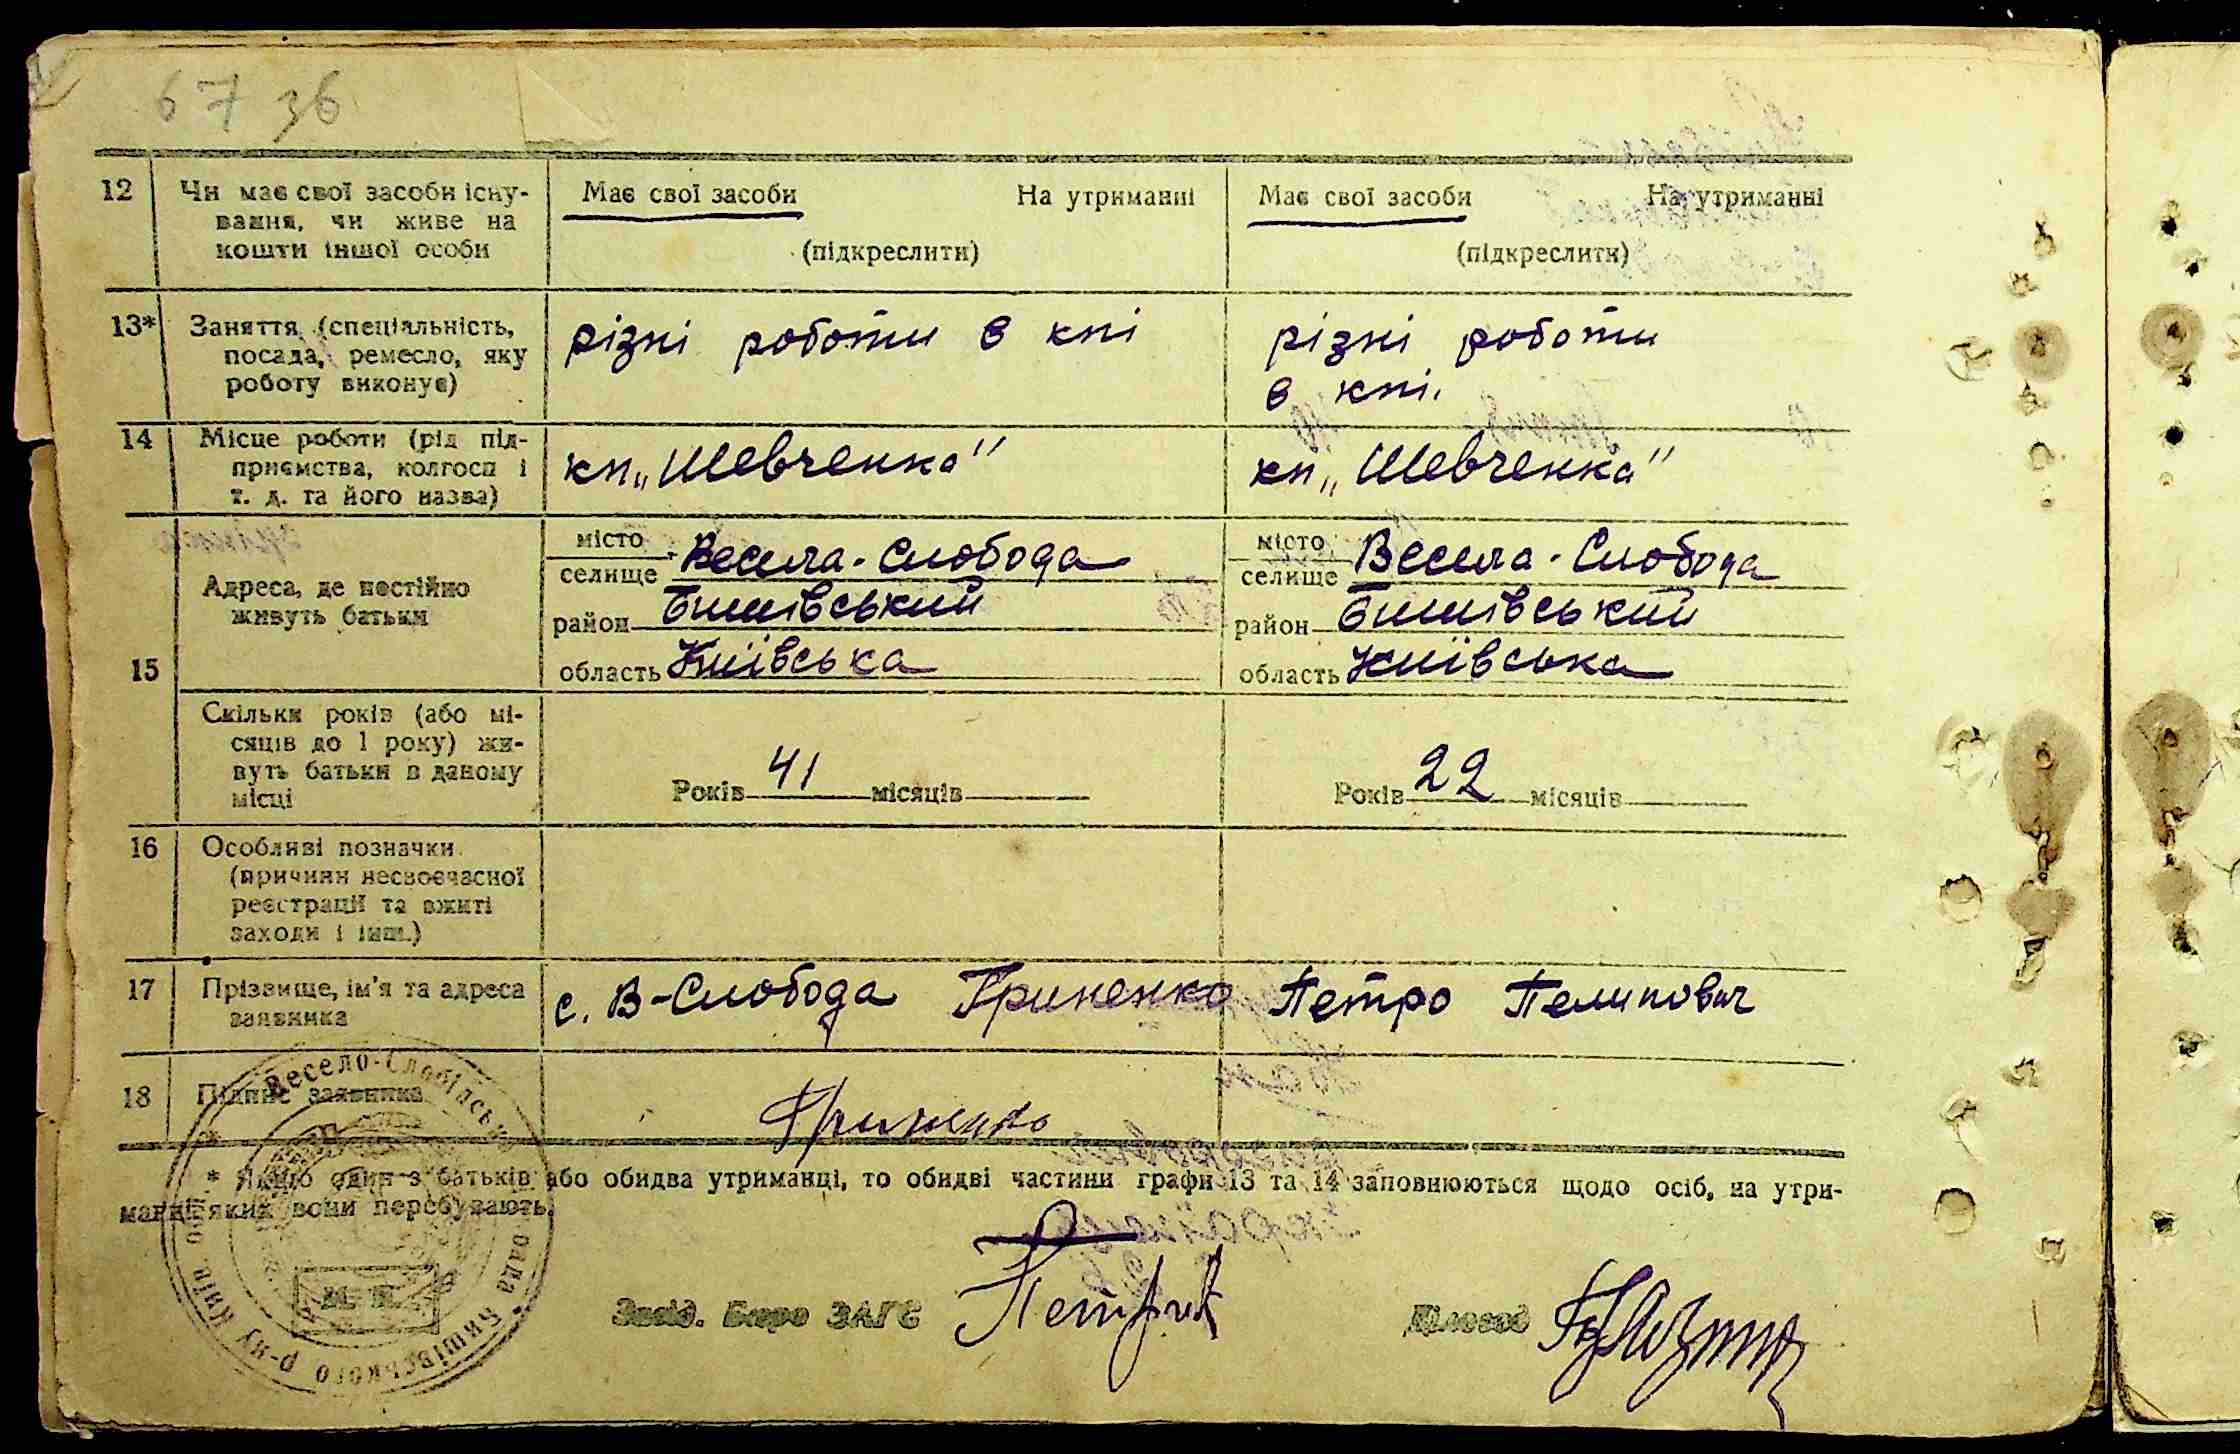 67 36
12 Чи має свої засоби існу-
вання, чи живе на
кошти іншої особи
Має свої засоби На утриманні
(підкреслити)
Має свої засоби На утриманні
(підкреслити)
13* Заняття (спеціяльність,
посада, ремесло, яку
роботу виконує)
різні роботи в кпі
різні роботи
в кпі.
14 Місце роботи (рід під-
приємства, колгосп і
т. д. та його назва)
кп „Шевченка"
кп „Шевченка"
15
Адреса, де постійно
живуть батьки
місто
селище Весела-Слобода
район Бишівський
область Київська
місто
селище Весела-Слобода
район Бишівський
область Київська
Скільки років (або мі-
сяців до 1 року) жи-
вуть батьки в даному
місці
Років 41 місяців
Років 22 місяців
16 Особливі позначки
(причини несвоєчасної
реєстрації та вжиті
заходи і інш.)
17 Прізвище, ім'я та адреса
заявника
с. В-Слобода Гриненко Петро Пелипович
18 Підпис заявника
Гриненко
* Якщо один з батьків або обидва утриманці, то обидві частини графи 13 та 14 заповнюються щодо осіб, на утри-
манці яких вони перебувають.
Весело-Слобідська рада Бишівського р-ну Київ. обл.
М. П.
Завід. Бюро ЗАГС
Діловод